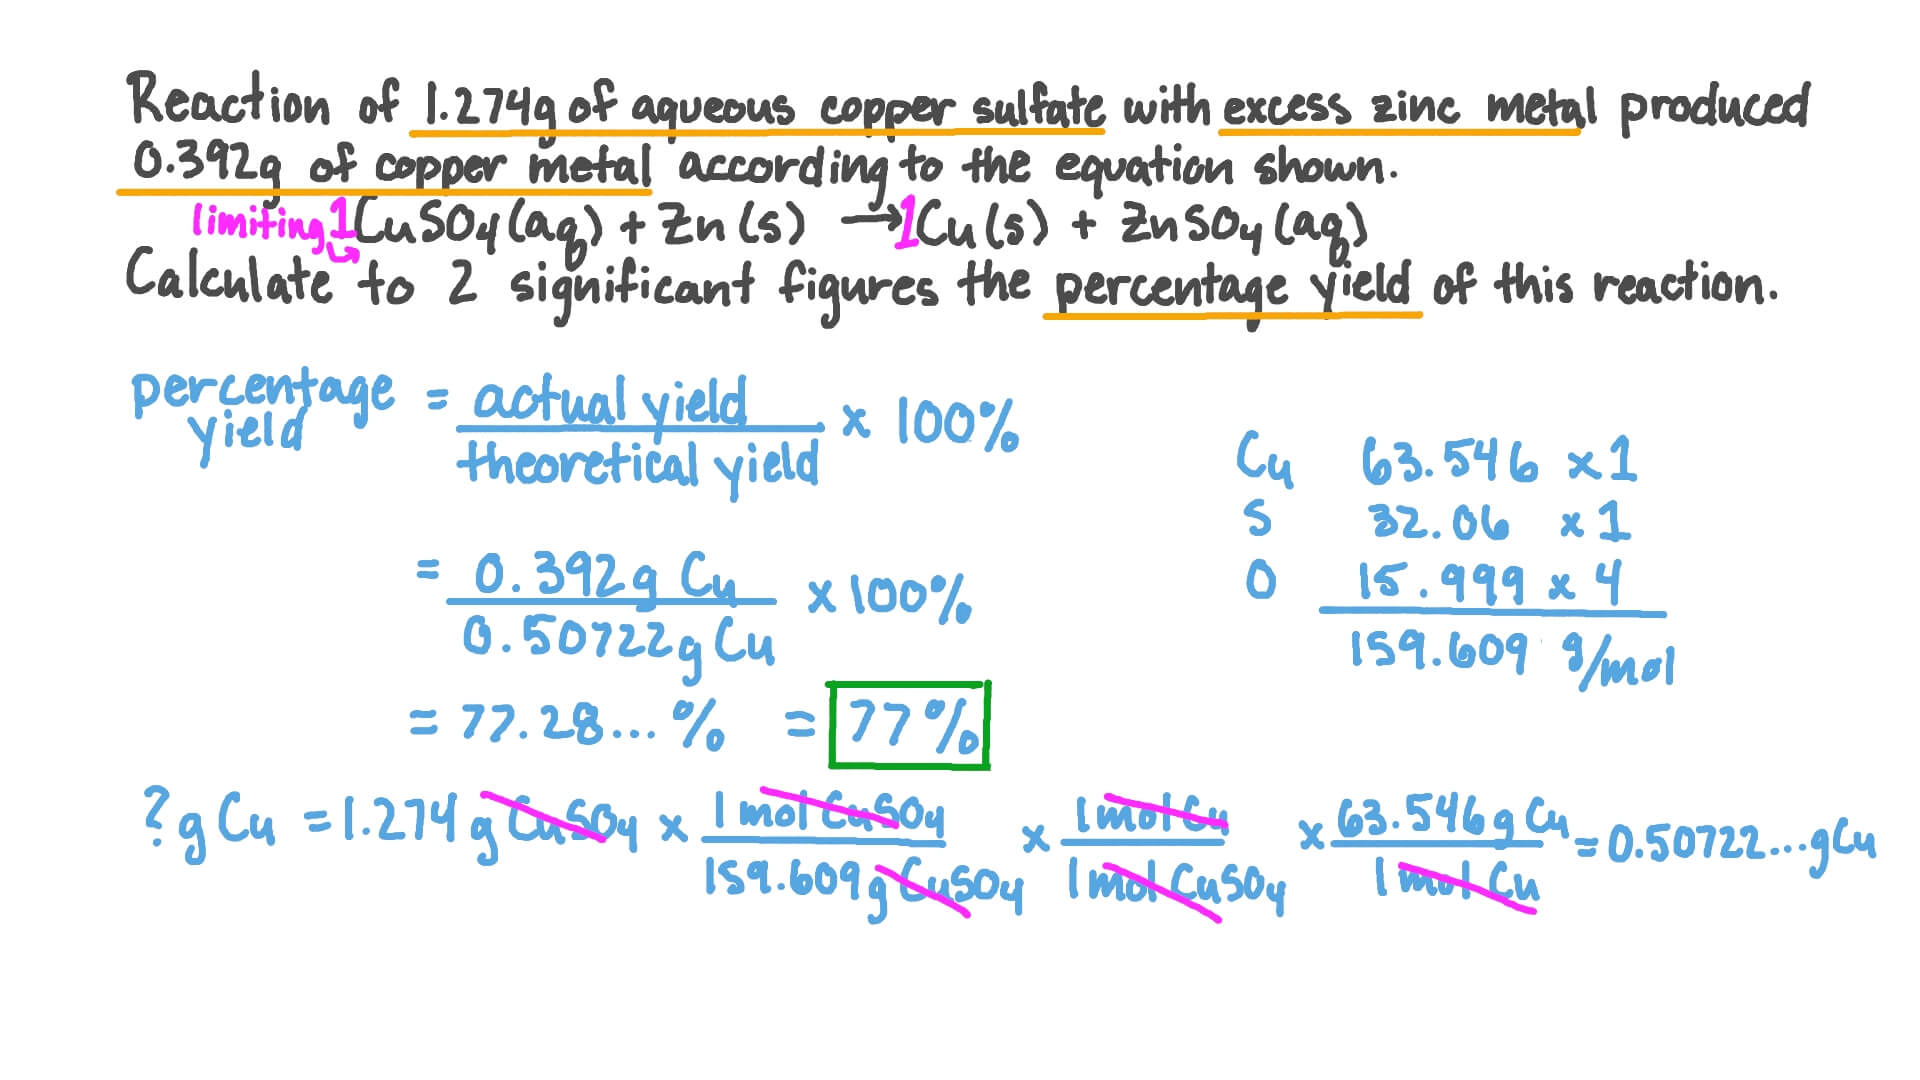 Reaction of 1.274g of aqueous copper sulfate with excess zinc metal produced
0.392g of copper metal according to the equation shown.
limiting 1CuSO4(aq) + Zn(s) → 1Cu(s) + ZnSO4(aq)
Calculate to 2 significant figures the percentage yield of this reaction.
percentage yield = actual yield / theoretical yield x 100%
= 0.392g Cu / 0.50722g Cu x 100%
= 77.28...% = 77%
Cu 63.546 x1
S 32.06 x1
O 15.999 x 4
159.609 g/mol
? g Cu = 1.274 g CuSO4 x 1 mol CuSO4 / 159.609 g CuSO4 x 1 mol Cu / 1 mol CuSO4 x 63.546 g Cu / 1 mol Cu = 0.50722...g Cu